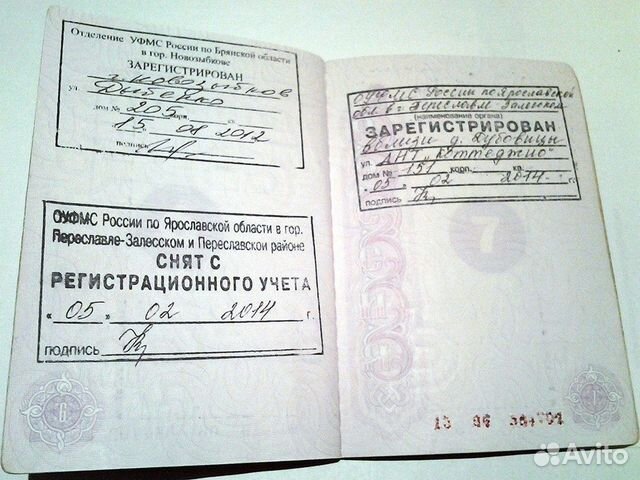 Отделение УФМС России по Брянской области
в гор. Новозыбкове
ЗАРЕГИСТРИРОВАН
г. Новозыбков
ул. Дыбенко
дом № 205 корп. кв.
15. 08 2012
подпись
ОУФМС России по Ярославской области в гор.
Переславле-Залесском и Переславском районе
СНЯТ С
РЕГИСТРАЦИОННОГО УЧЕТА
« 05 » 02 2014 г.
ПОДПИСЬ
6
ОУФМС России по Ярославской
обл в г Переславле Залесском
(наименование органа)
ЗАРЕГИСТРИРОВАН
вблизи д. Дубовицы
ул. ДНТ "Коттеджио"
дом № 151 корп. кв.
« 05 » 02 2014 г.
ПОДПИСЬ
7
7
Avito